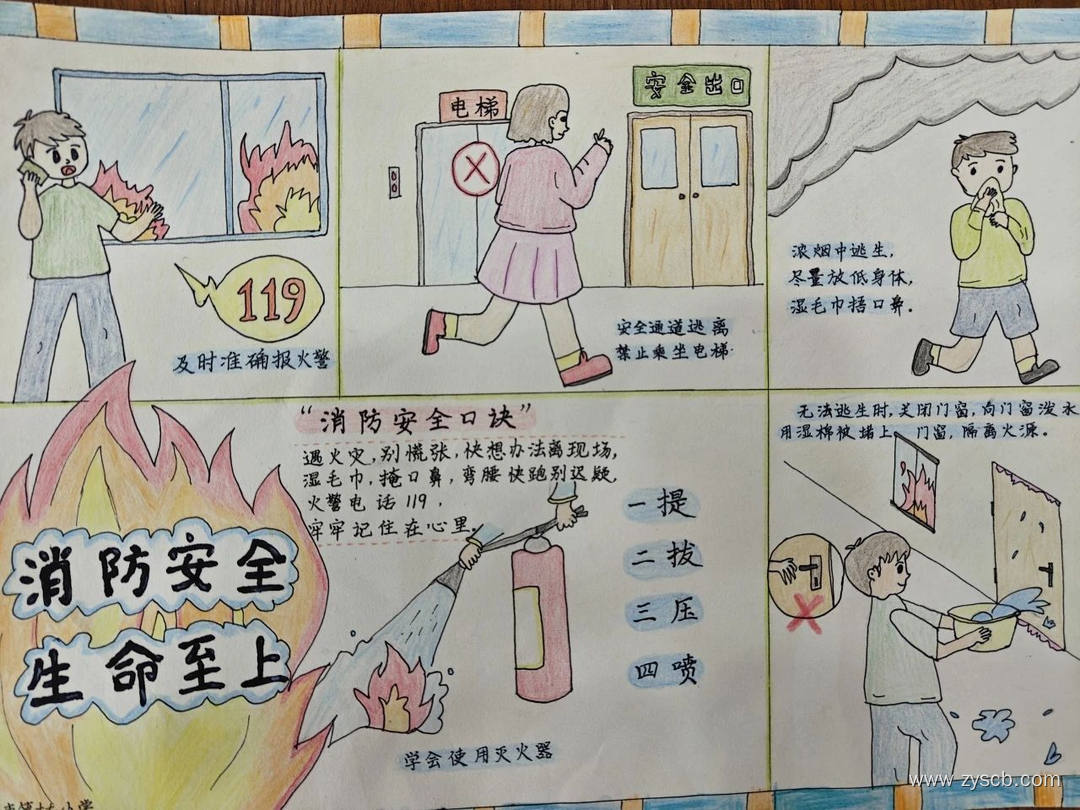 119
及时准确报火警
电梯
安全出口
安全通道逃离
禁止乘坐电梯.
浓烟中逃生,
尽量放低身体,
湿毛巾捂口鼻.
"消防安全口诀"
遇火灾,别慌张,快想办法离现场,
湿毛巾,掩口鼻,弯腰快跑别迟疑,
火警电话119,
牢牢记住在心里.
一提
二拔
三压
四喷
学会使用灭火器
消防安全
生命至上
无法逃生时,关闭门窗,向门窗泼水
用湿棉被堵上 门窗,隔离火源。
小学
www.zyscb.com